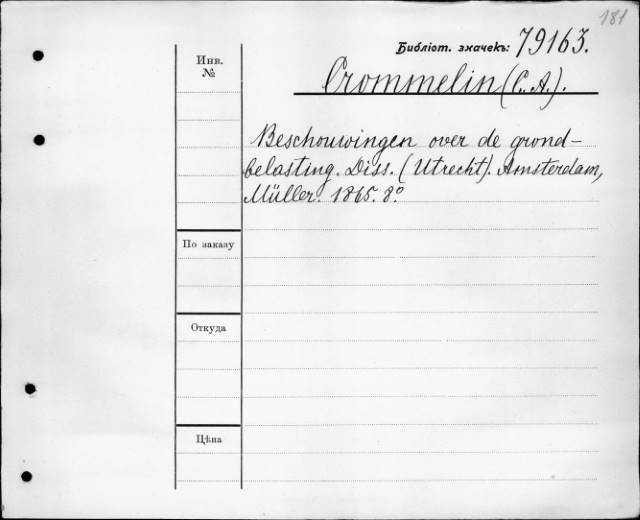 181
Библіот. значекъ: 79163.
Инв.
№
Crommelin (C. A.).
Beschouwingen over de grond-
belasting. Diss. (Utrecht). Amsterdam,
Müller. 1865. 8º
По заказу
Откуда
Цѣна